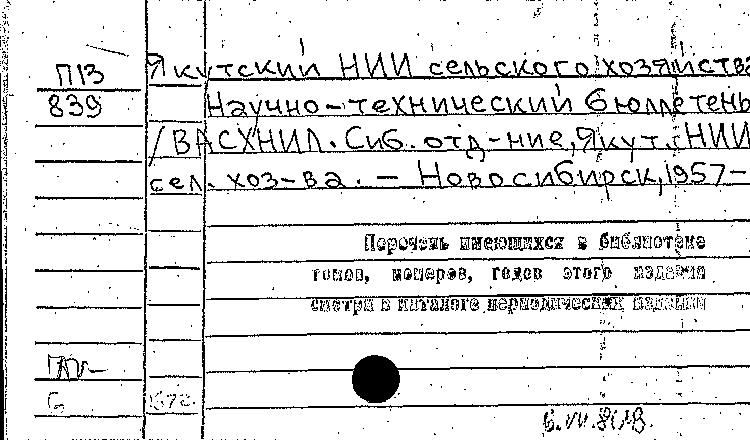 П13
839
Якутский НИИ сельского хозяйства
Научно-технический бюллетень
/ВАСХНИЛ. Сиб. отд-ние, Якут. НИИ
сел. хоз-ва. – Новосибирск, 1957–
Перечень имеющихся в библиотеке
томов, номеров, годов этого издания
смотри в каталоге периодических изданий